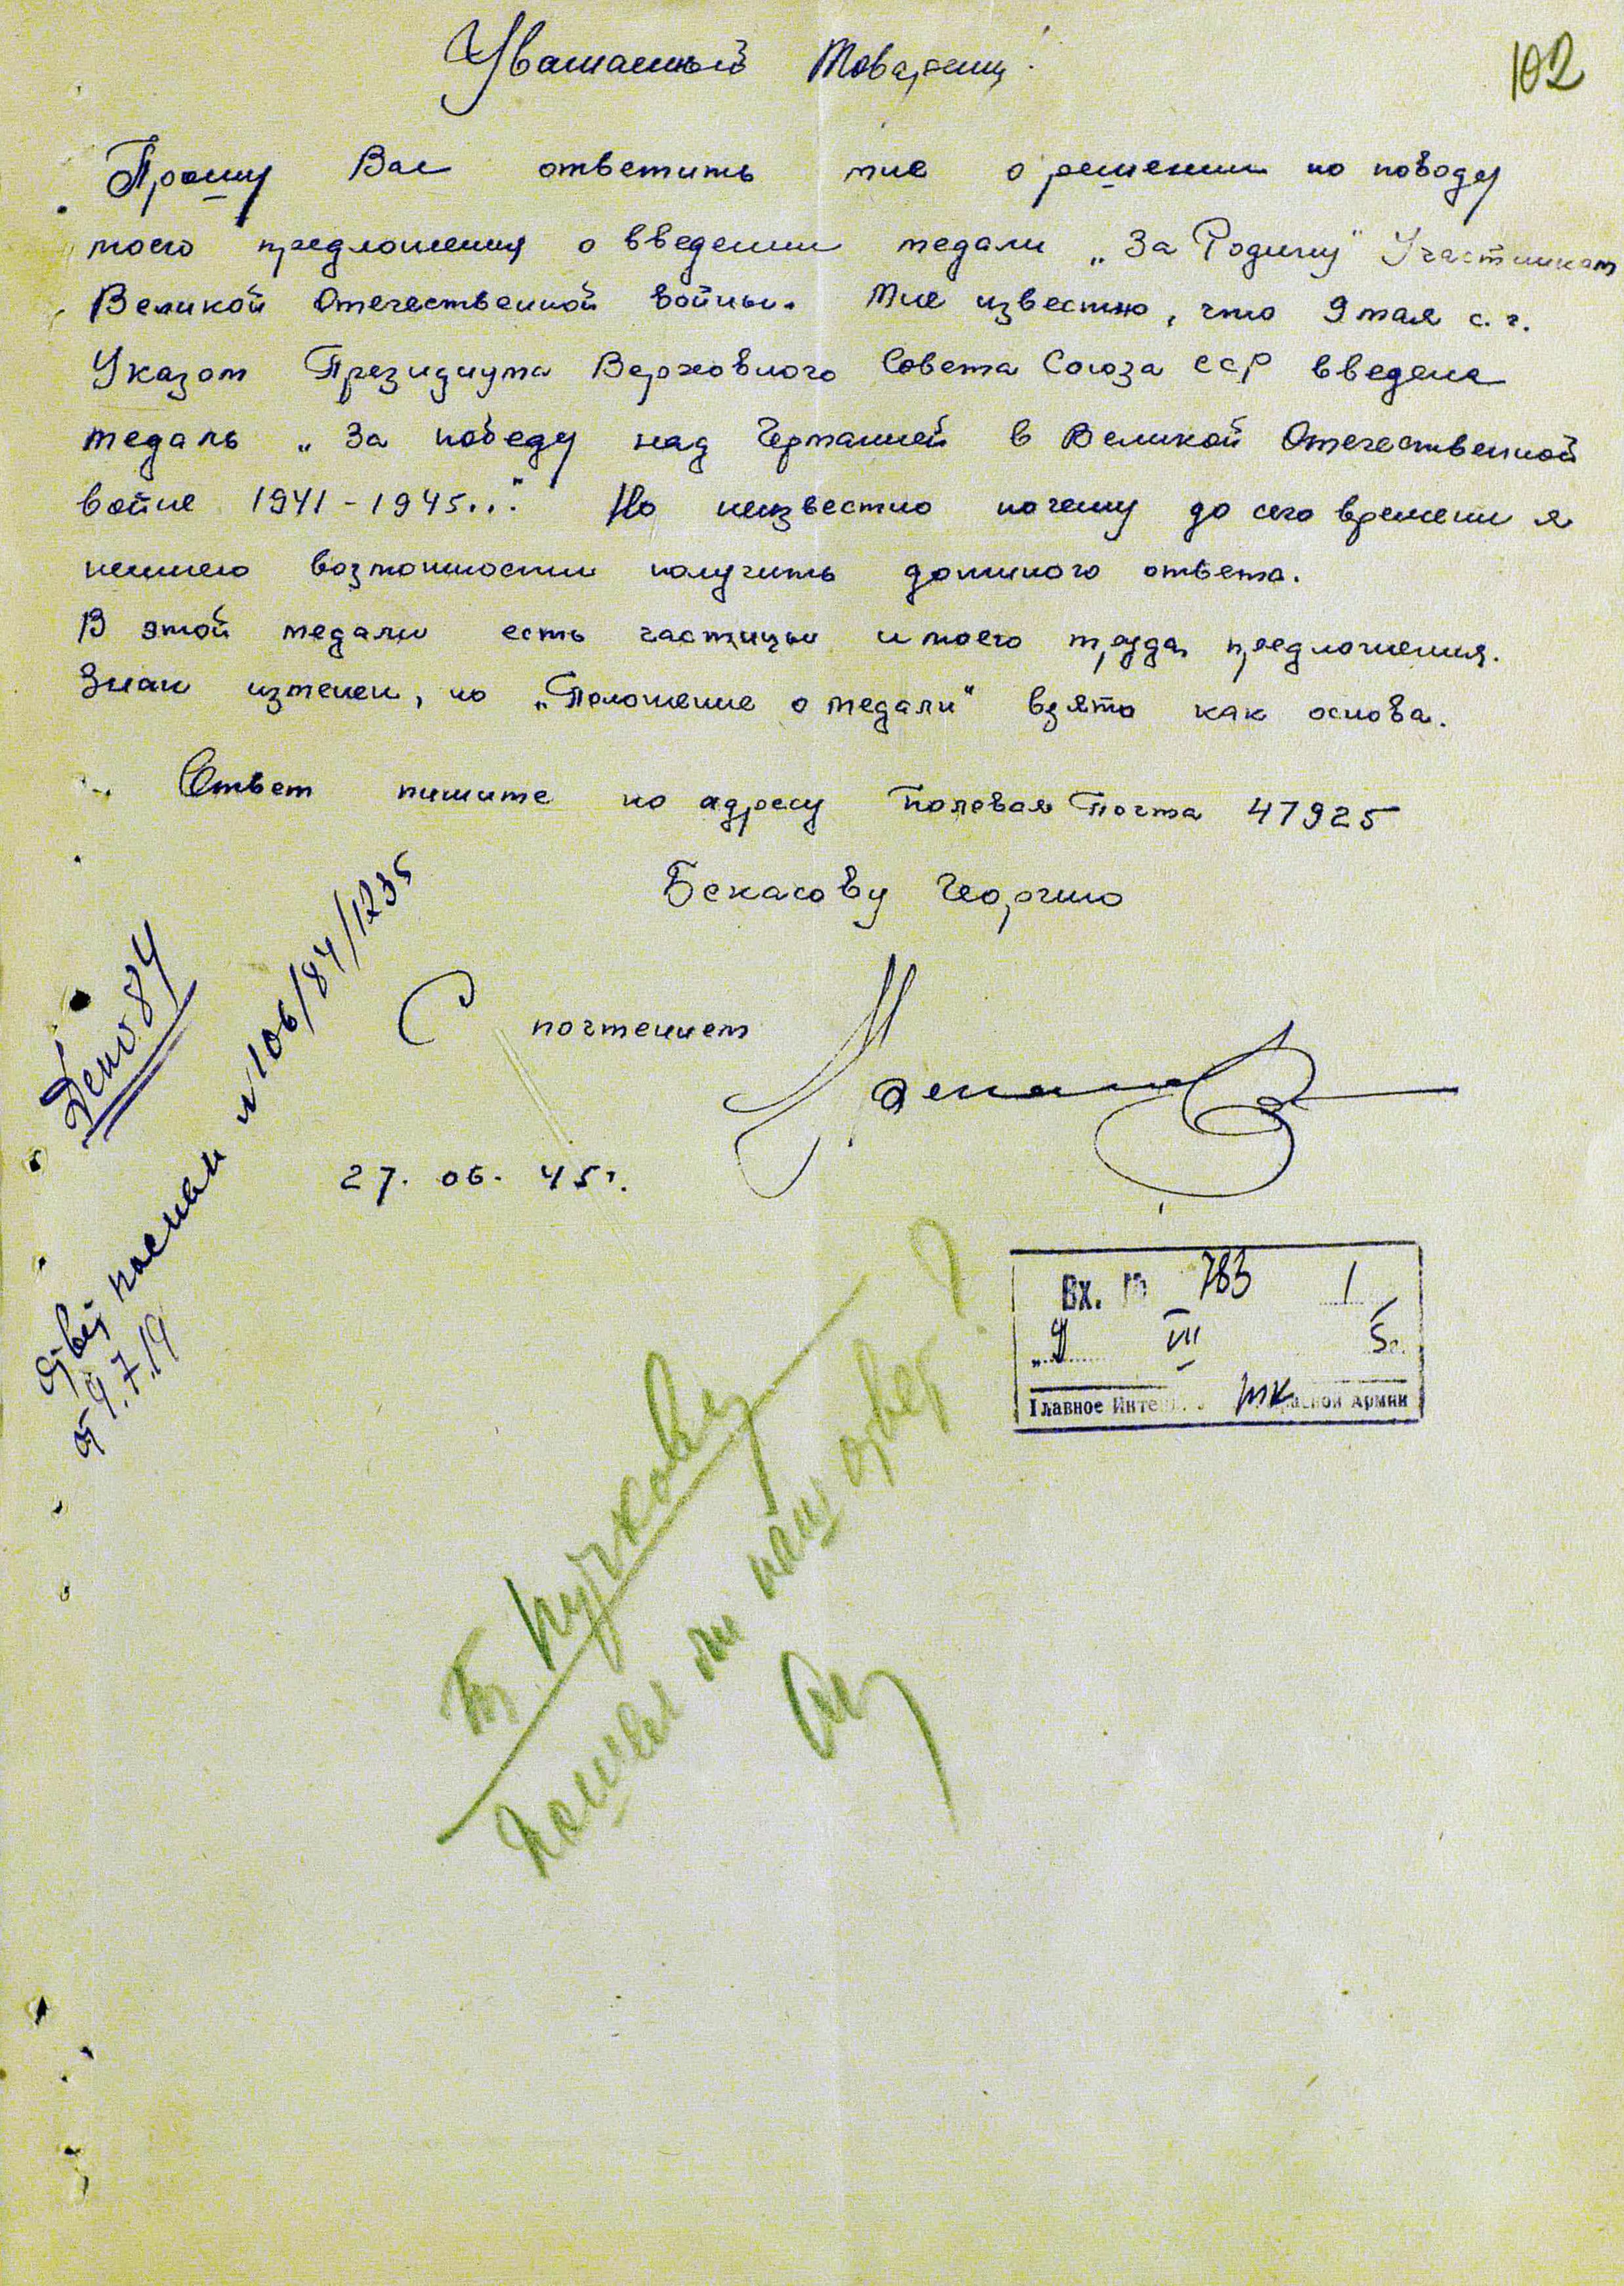 102
Уважаемый Товарищ!
Прошу Вас ответить мне о решении по поводу
моего предложения о введении медали „За Родину" Участникам
Великой Отечественной войны. Мне известно, что 9 мая с. г.
Указом Президиума Верховного Совета Союза ССР введена
медаль „За победу над Германией в Великой Отечественной
войне 1941-1945..." Но неизвестно почему до сего времени я
неимею возможности получить должного ответа.
В этой медали есть частицы и моего труда, предложения.
Знак изменен, но „Положение о медали" взято как основа.
Ответ пишите по адресу Полевая Почта 47925
Бекасову Георгию
С почтением
27. 06. 45 г.
Дело 84
Ответ послан № 106/84/1235
от 9.7.19
Вх. № 783 1
„9 VII 5 г.
Главное Инте Красной Армии
Т. Пучкову
Послан ли наш ответ?